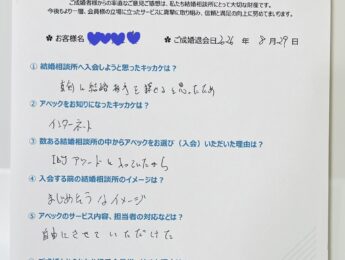 ご成婚者様からの率直なご意見ご感想は、私たち結婚相談所にとって大切な財産です。
今後もより一層、会員様の立場に立ったサービスに真摯に取り組み、信頼と満足の向上に努めてまいります。
◆お客様名 ◆ご成婚退会日 2026年 8月29日
① 結婚相談所へ入会しようと思ったキッカケは？
真剣に結婚相手を探せると思ったため
② アベックをお知りになったキッカケは？
インターネット
③ 数ある結婚相談所の中からアベックをお選び（入会）いただいた理由は？
IBJアワードとっていたから
④ 入会する前の結婚相談所のイメージは？
まじめそうなイメージ
⑤ アベックのサービス内容、担当者の対応などは？
自由にさせていただけた